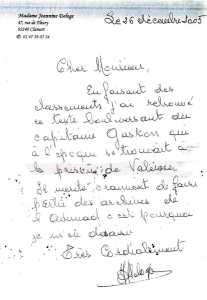 Madame Jeannine Deloge
47, rue de Fleury
92140 Clamart
Le 26 décembre 2005
Cher Monsieur,
En faisant des
classements j'ai retrouvé
ce texte bouleversant du
capitaine Gaston qui
à l'époque se trouvait à
la prison de
Il mérite vraiment de faire
partie des archives de
l' c'est pourquoi
je m'en
Très Cordialement